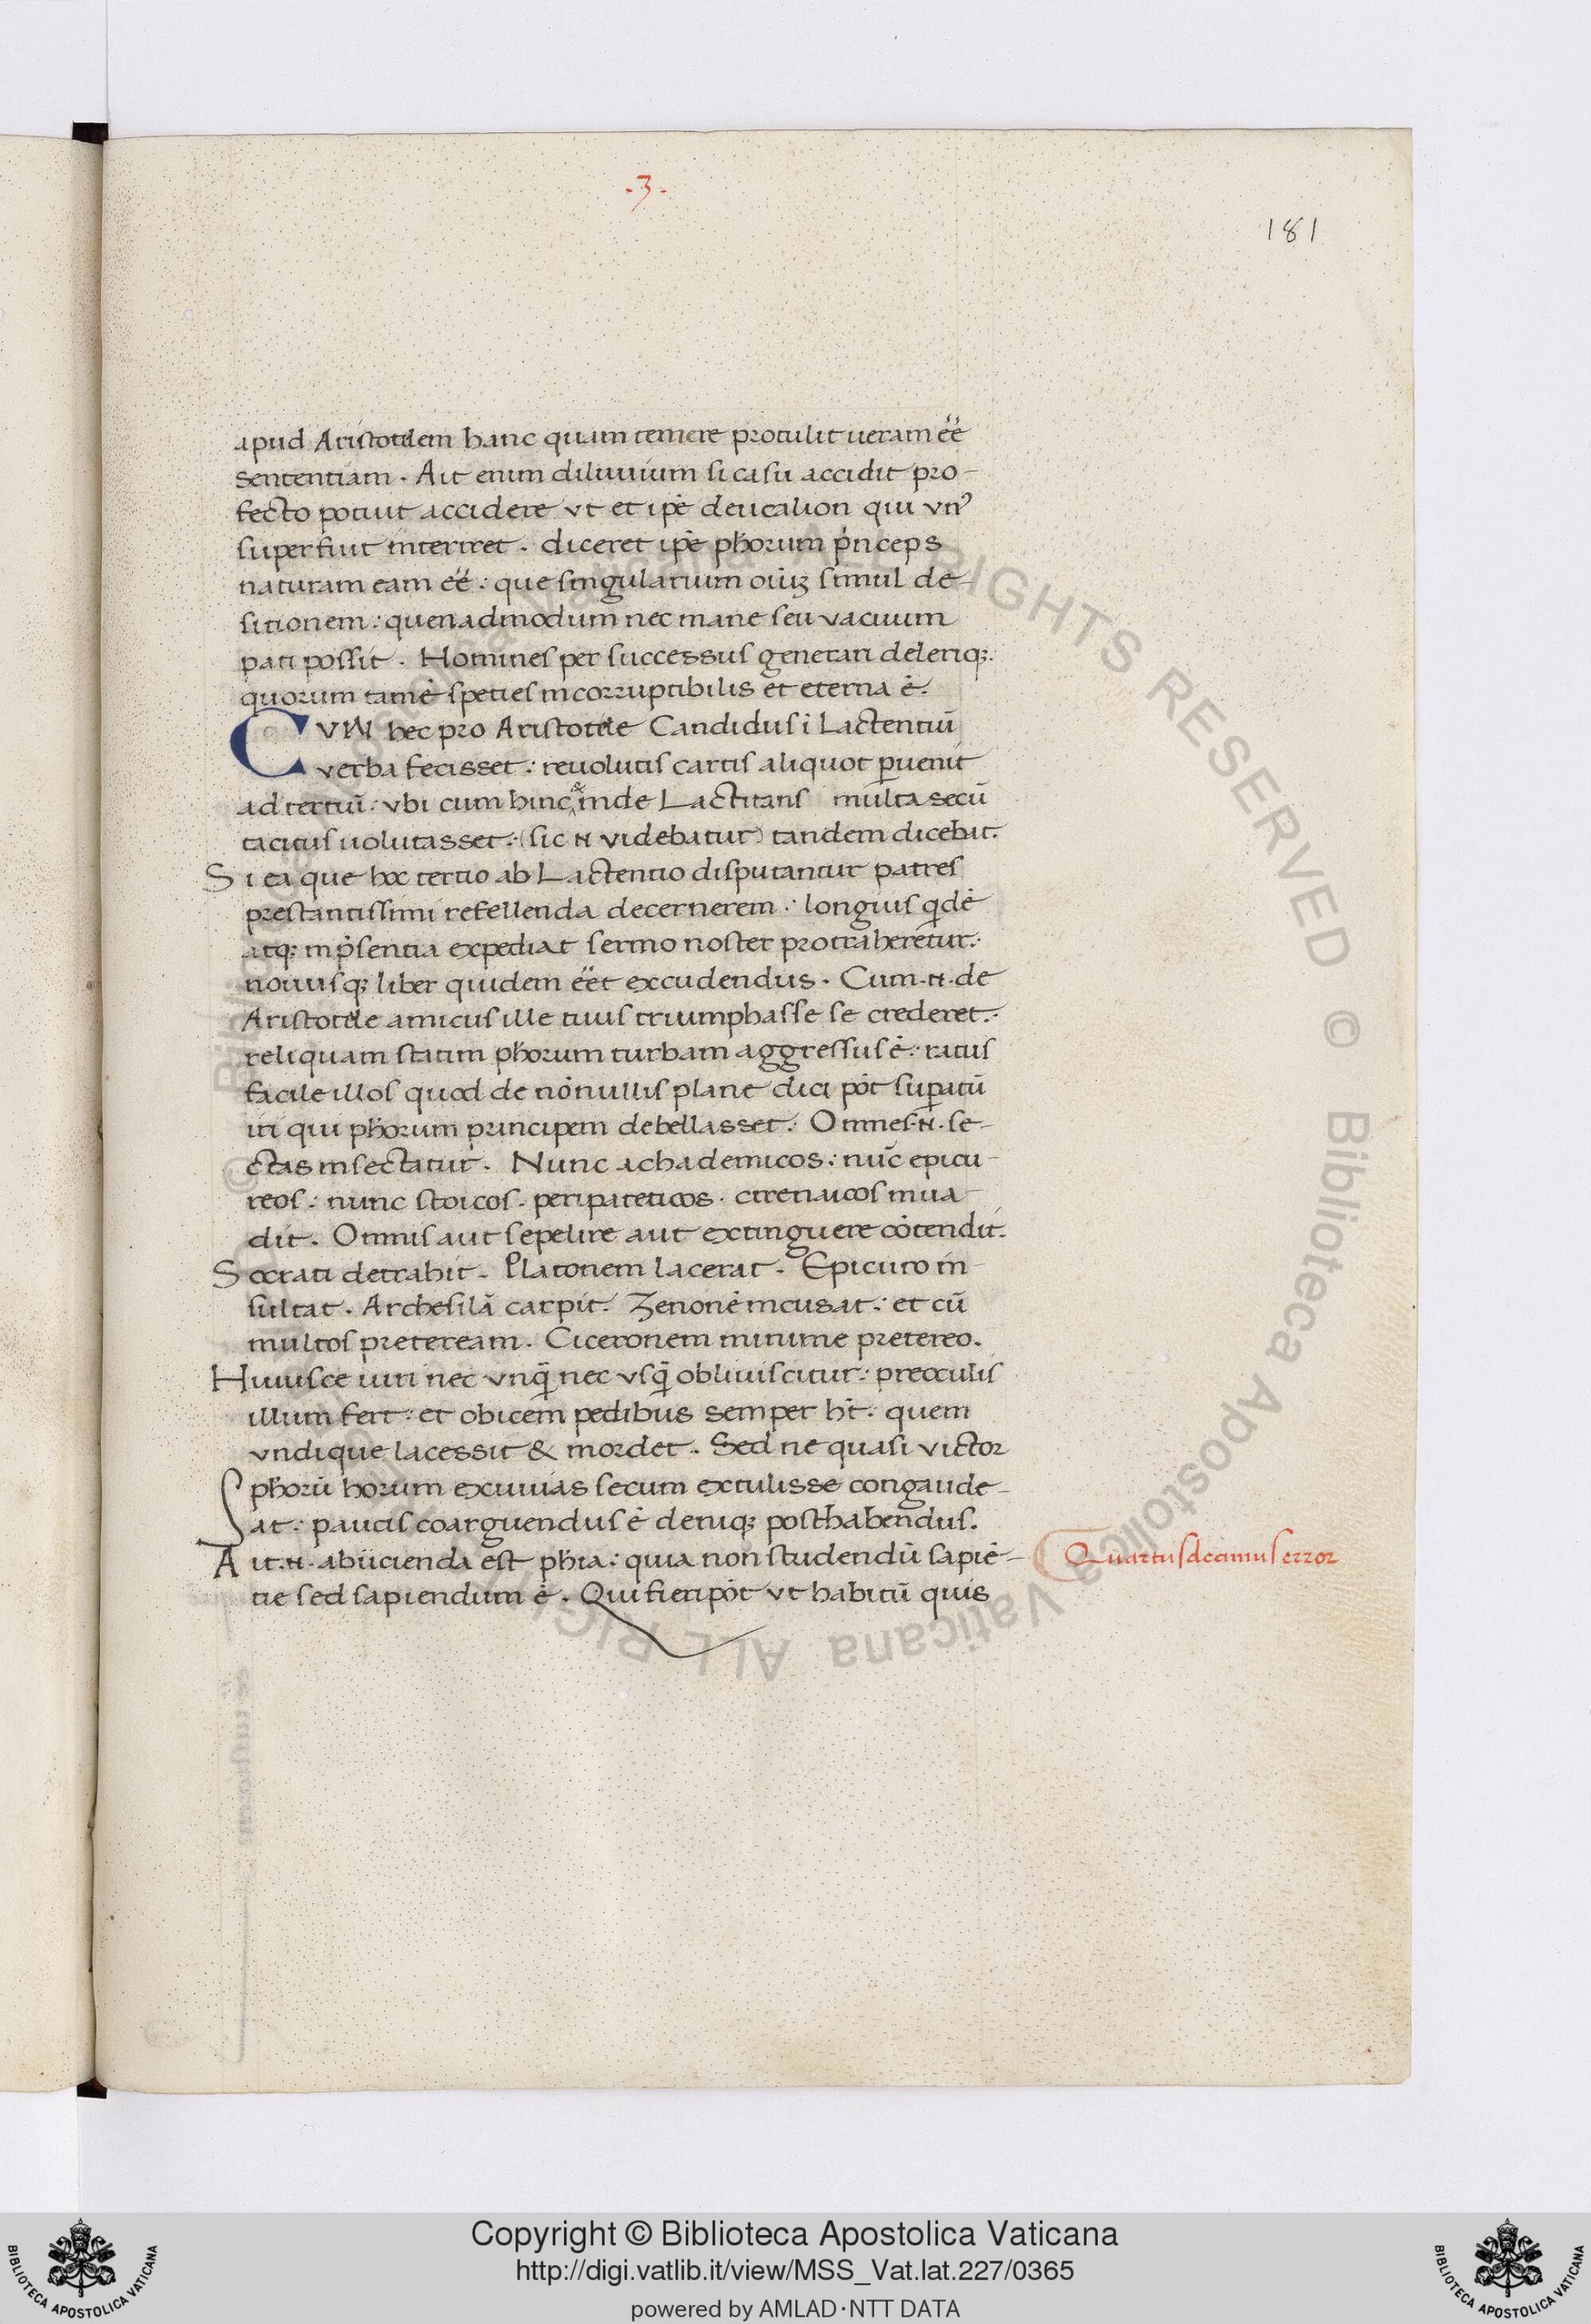 .3.
181
apud Aristotelem hanc quam temere protulit ueram ee͂
sententiam . Ait enim diluuium si casu accidit pro-
fecto potuit accidere vt et ipe̓ deucalion qui vnꝰ
superfuit interiret . diceret ipe̓ ph̓orum pn̓ceps
naturam eam ee͂ : que singularium oi̓uꝫ simul de-
sitionem : quenadmodum nec mane seu vacuum
pati possit . Homines per successus generari deleriqꝫ.
quorum tame̓ speties incorruptibilis et eterna e̓.
CVM hec pro Aristotele Candidus i̓ Lactentiū
verba fecisset : reuolutis cartis aliquot ꝑuenit
ad tertiū : vbi cum hinc & inde Lactitans multa secū
tacitus uolutasset : (sic .n. videbatur) tandem dicebat.
Si ea que hoc tertio ab Lactentio disputantur patres
prestantissimi refellenda decernerem : longius q̓de̓
atqꝫ in pn̓sentia expediat sermo noster protraheretur :
nouusqꝫ liber quidem ee͂t excudendus . Cum .n. de
Aristotele amicus ille tuus triumphasse se crederet :
reliquam statim ph̓orum turbam aggressus e̓ : ratus
facile illos quod de no̓nullis plane dici po̓t suꝑatū
iri qui ph̓orum principem debellasset . Omnes .n. se-
ctas insectatur . Nunc achademicos : nūc epicu-
reos : nunc stoicos . peripateticos . cirenaicos inua-
dit . Omnis aut sepelire aut extinguere co̓tendit.
Socrati detrahit . Platonem lacerat . Epicuro in-
sultat . Archesilā carpit . Zenone̓ incusat : et cū
multos preteream . Ciceronem minime pretereo.
Huiusce uiri nec vnq̄ nec vsq̄ obliuiscitur : preoculis
illum fert : et obicem pedibus semper ht̓ : quem
vndique lacessit & mordet . Sed ne quasi victor
ph̓orū horum exuuias secum extulisse congaude-
at : paucis coarguendus e̓ deniqꝫ posthabendus.
Ait .n. abiicienda est ph̓ia : quia non studendū sapie̓-
tie sed sapiendum e̓ . Qui fieri po̓t vt habitū quis
Quartusdecimus error
Copyright © Biblioteca Apostolica Vaticana
http://digi.vatlib.it/view/MSS_Vat.lat.227/0365
powered by AMLAD·NTT DATA